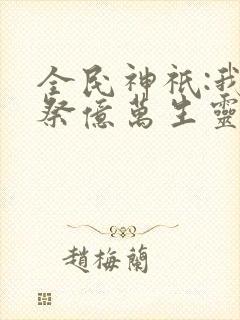 全民神祇:我
祭億萬生靈
趙梅蘭